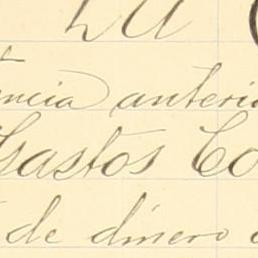 La
encia anteri
Gastos Co
de dinero